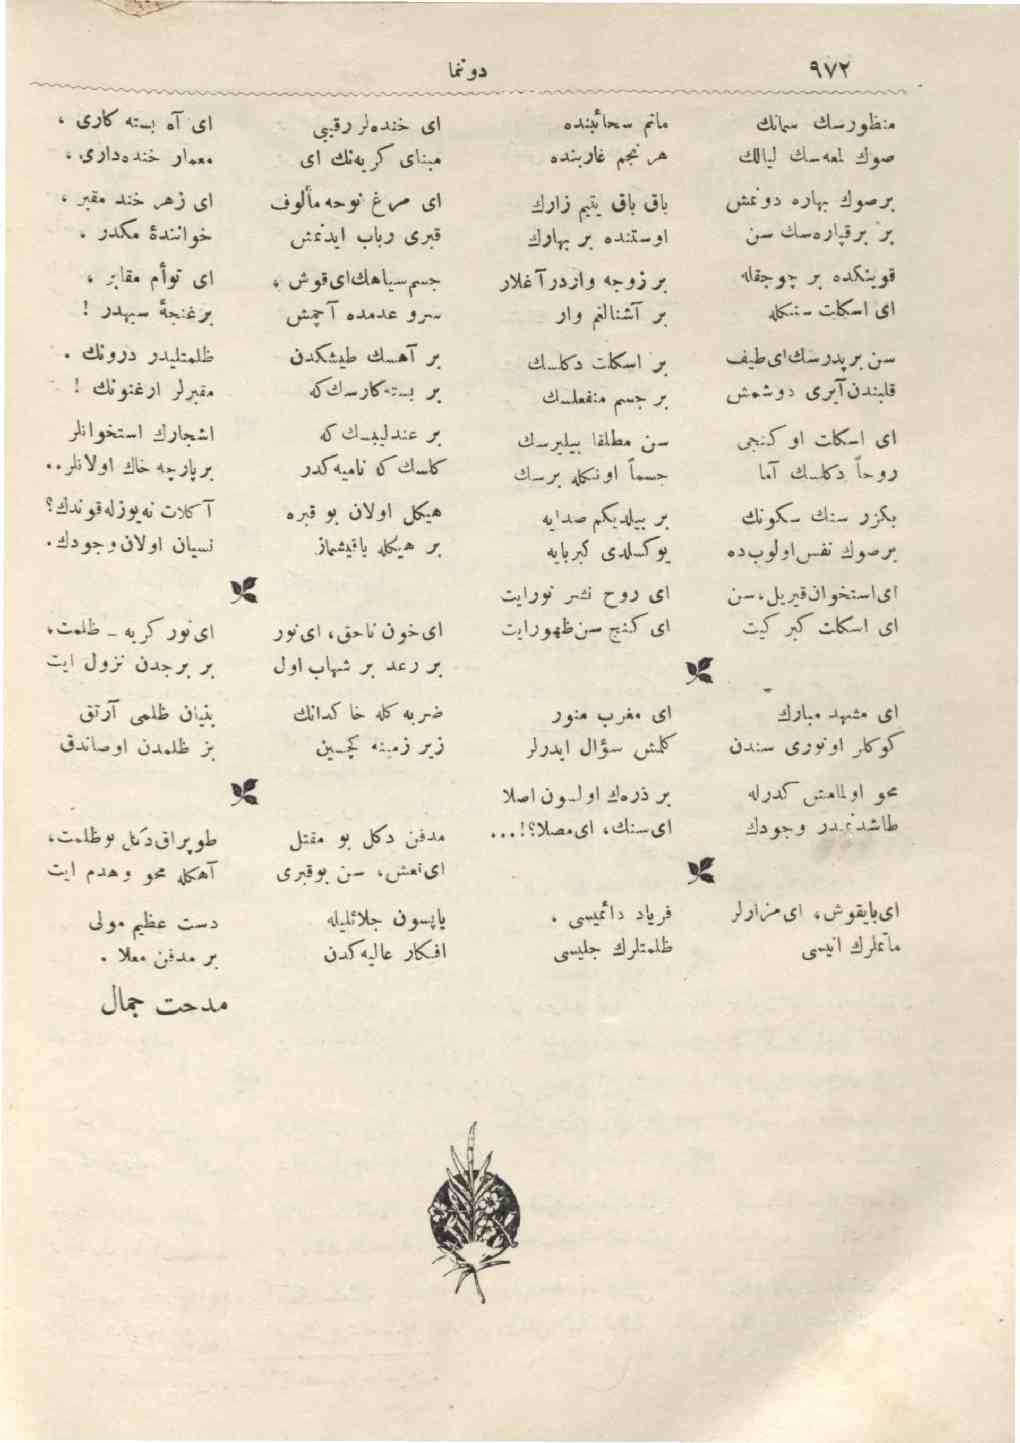 ٩٧٢
دوننما
منظورسك سمانك ماتم سحائبنده
صوك لمعه‌سك ليالك هر نجم غاربنده
برصوك بهاره دونمش باق باق يتيم زارك
بر برقپاره‌سك سن اوستنده بر بهارك
قوينكده بر چوجقله بر زوجه واردر آغلار
اى اسكات سننكله بر آشنالغم وار
سن برپدرسك اى طيف بر اسكلت دكلسك
قلبندن آيرى دوشمش بر جسم منفعلسك
اى اسكلت او كنجى سن مطلقا بيليرسك
روحاً دكلسك آما جسماً اونكله برسك
بكزر سنك سكونك بر بيلديكم صدايه
برصوك نفس اولوب ده يوكسلدى كبريايه
اى استخوان قيريل، سن اى روح نشر نورايت
اى اسكلت كبر كيت اى كنج سن ظهورايت
اى مشهد مبارك اى مغرب منور
كوكلر اونورى سندن كلمش سؤال ايدرلر
محو اولمامش كدرله بر ذره‌ك اولسون اصلا
طاشدنميدر وجودك اى سنك، اى مصلا؟!...
اى بايقوش، اى مزارلر فرياد دائميسى .
ماتملرك انيسى ظلمتلرك جليسى
اى خنده‌لر رقيبى اى آه بسته كارى ،
مبناى كريه‌نك اى معمار خنده‌دارى،
اى مرغ نوحه مألوف اى زهر خند مقبر ،
قبرى رباب ايدنمش خواننده‌ٔ مكدر .
جسم سياهك اى قوش ، اى توأم مقابر ،
سرو عدمده آچمش برغنجهٔ سيهدر !
بر آهسك طيشكدن ظلمتليدر درونك .
بر بسته‌كارسك كه مقبرلر ارغنونك !
بر عندليبسك كه اشجارك استخوانلر
كاسك كه ناميه‌كدر برپارچه خاك اولانلر..
هيكل اولان بو قبره آكلات نه يوزله قوندك؟
بر هيكله ياقيشماز نسيان اولان وجودك.
اى خون ناحق، اى نور اى نور كريه ـ ظلمت،
بر رعد بر شهاب اول بر برجدن نزول ايت
ضربه كله خاكدانك بنيان ظلمى آرتق
زير زمينه كچسين بز ظلمدن اوصاندق
مدفن دكل بو مقتل طوپراق دكل بوظلمت،
اى نعش، سن بوقبرى آهكله محو وهدم ايت
ياپسون جلائليله دست عظيم مولى
افكار عاليه‌كدن بر مدفن معلا .
مدحت جمال